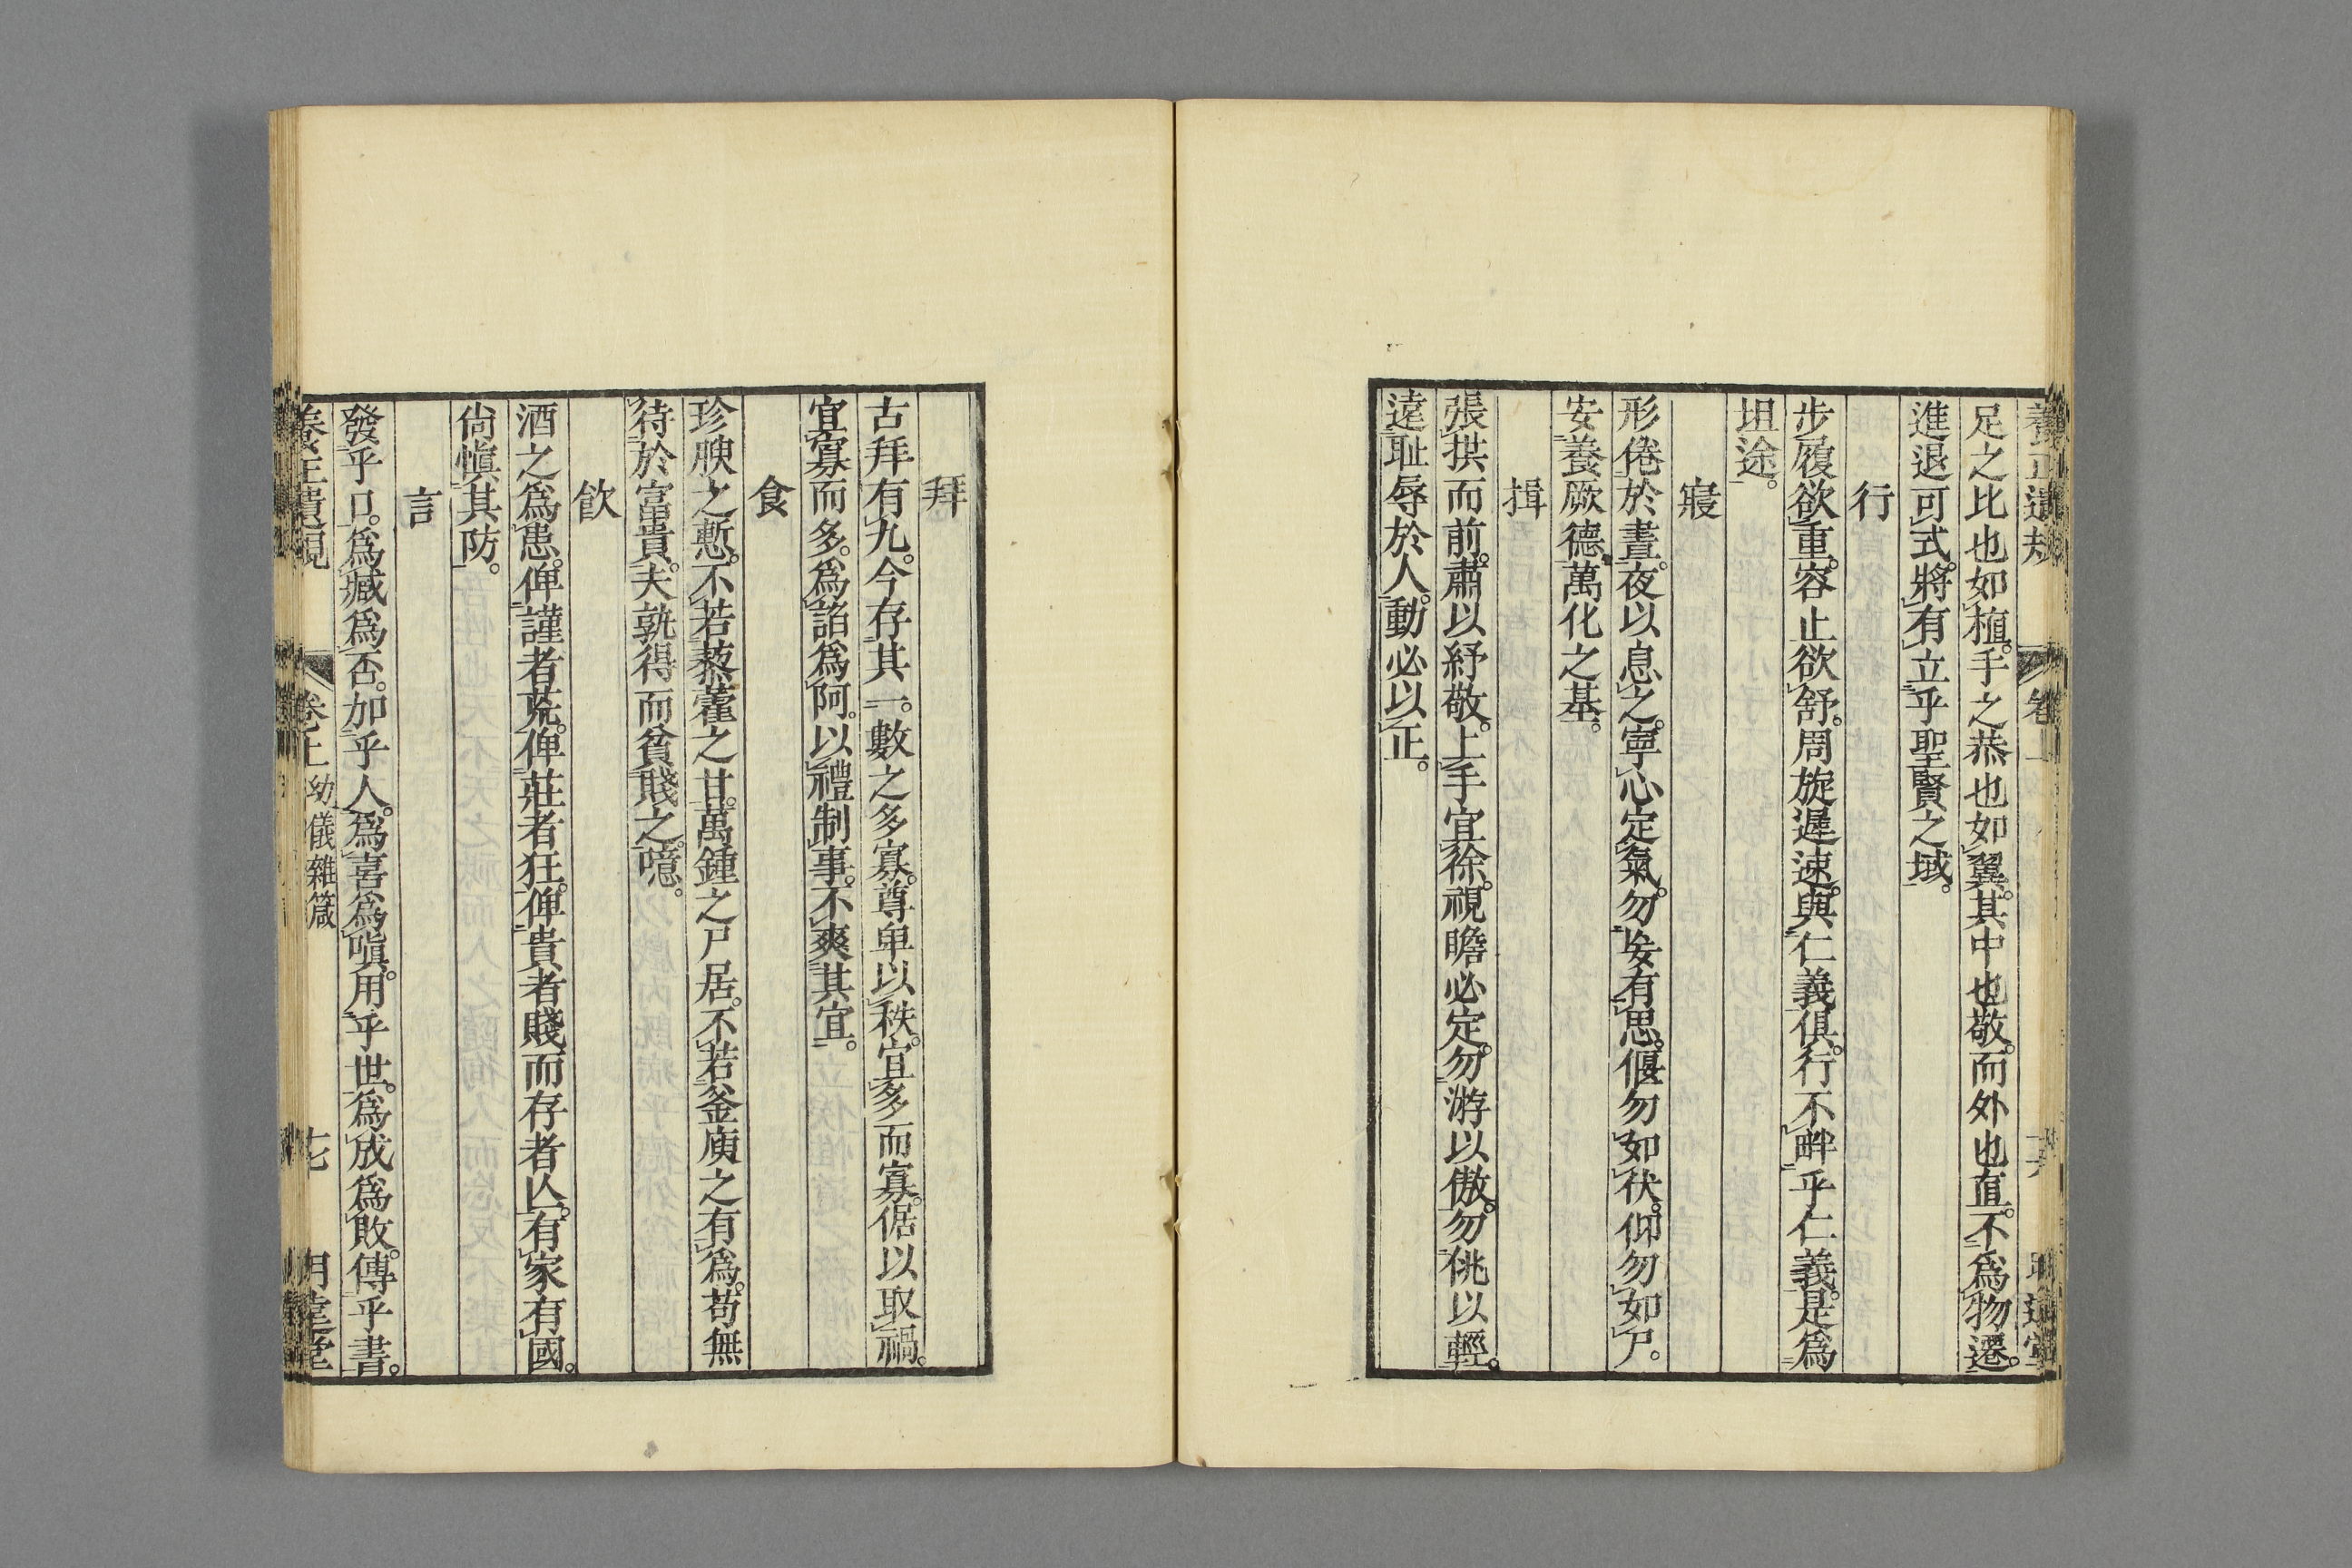 足之比也如植。手之恭也如翼。其中也敬。而外也直。不爲物遷。
進退可式。將有立乎聖賢之域。
行
步履欲重。容止欲舒。周旋遲速。與仁義俱。行不畔乎仁義。是爲
坦途。
寢
形倦於晝。夜以息之。寧心定氣。勿妄有思。偃勿如伏。仰勿如尸。
安養厥德。萬化之基。
揖
張拱而前。肅以紓敬。上手宜徐。視瞻必定。勿游以傲。勿佻以輕。
遠耻辱於人。動必以正。
拜
古拜有九。今存其一。數之多寡。尊卑以秩。宜多而寡。倨以取禍。
宜寡而多。爲諂爲阿。以禮制事。不爽其宜。
食
珍腴之慙。不若藜藿之甘。萬鍾之尸居。不若釜庾之有爲。苟無
待於富貴。夫孰得而貧賤之。噫。
飮
酒之爲患。俾謹者荒。俾莊者狂。俾貴者賤而存者亾。有家有國。
尙愼其防。
言
發乎口。爲臧爲否。加乎人。爲喜爲嗔。用乎世。爲成爲敗。傳乎書。
養正遺規 卷上 幼儀雜箴